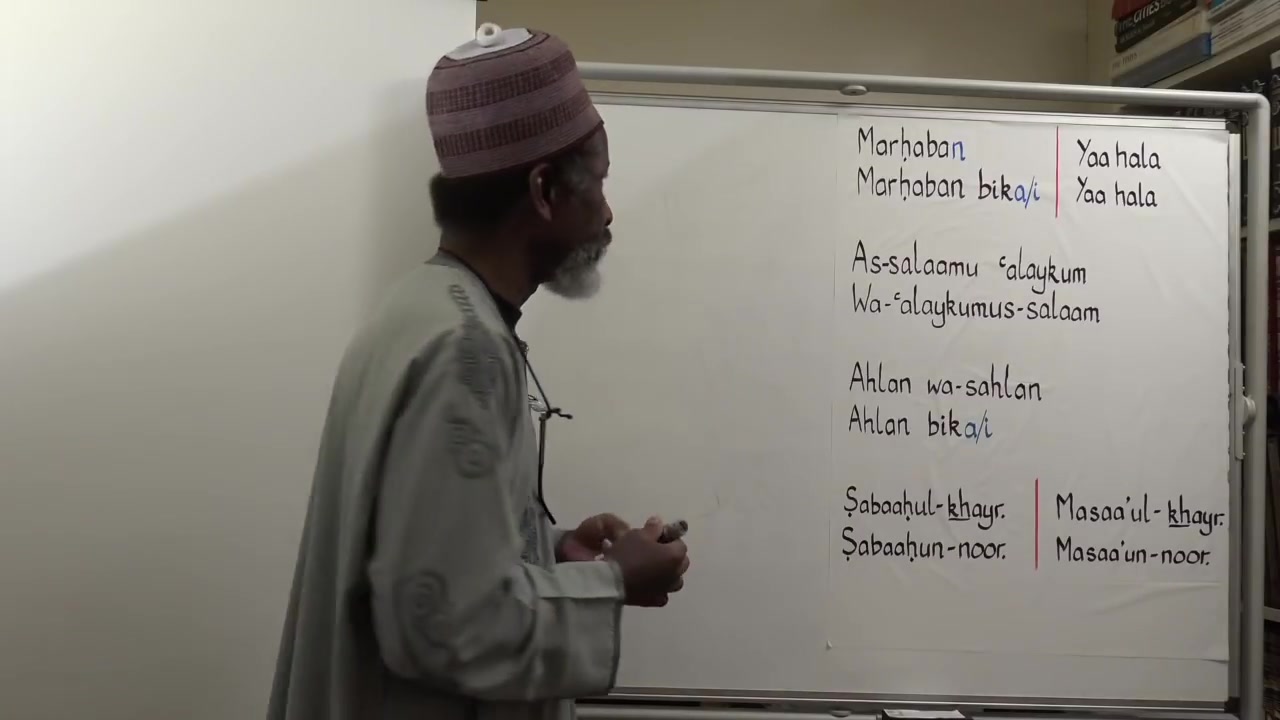 THE CITIES
Marḥaban
Marḥaban bika/i
Yaa hala
Yaa hala
As-salaamu ʿalaykum
Wa-ʿalaykumus-salaam
Ahlan wa-sahlan
Ahlan bika/i
Ṣabaaḥul-khayr.
Ṣabaaḥun-noor.
Masaa'ul-khayr.
Masaa'un-noor.